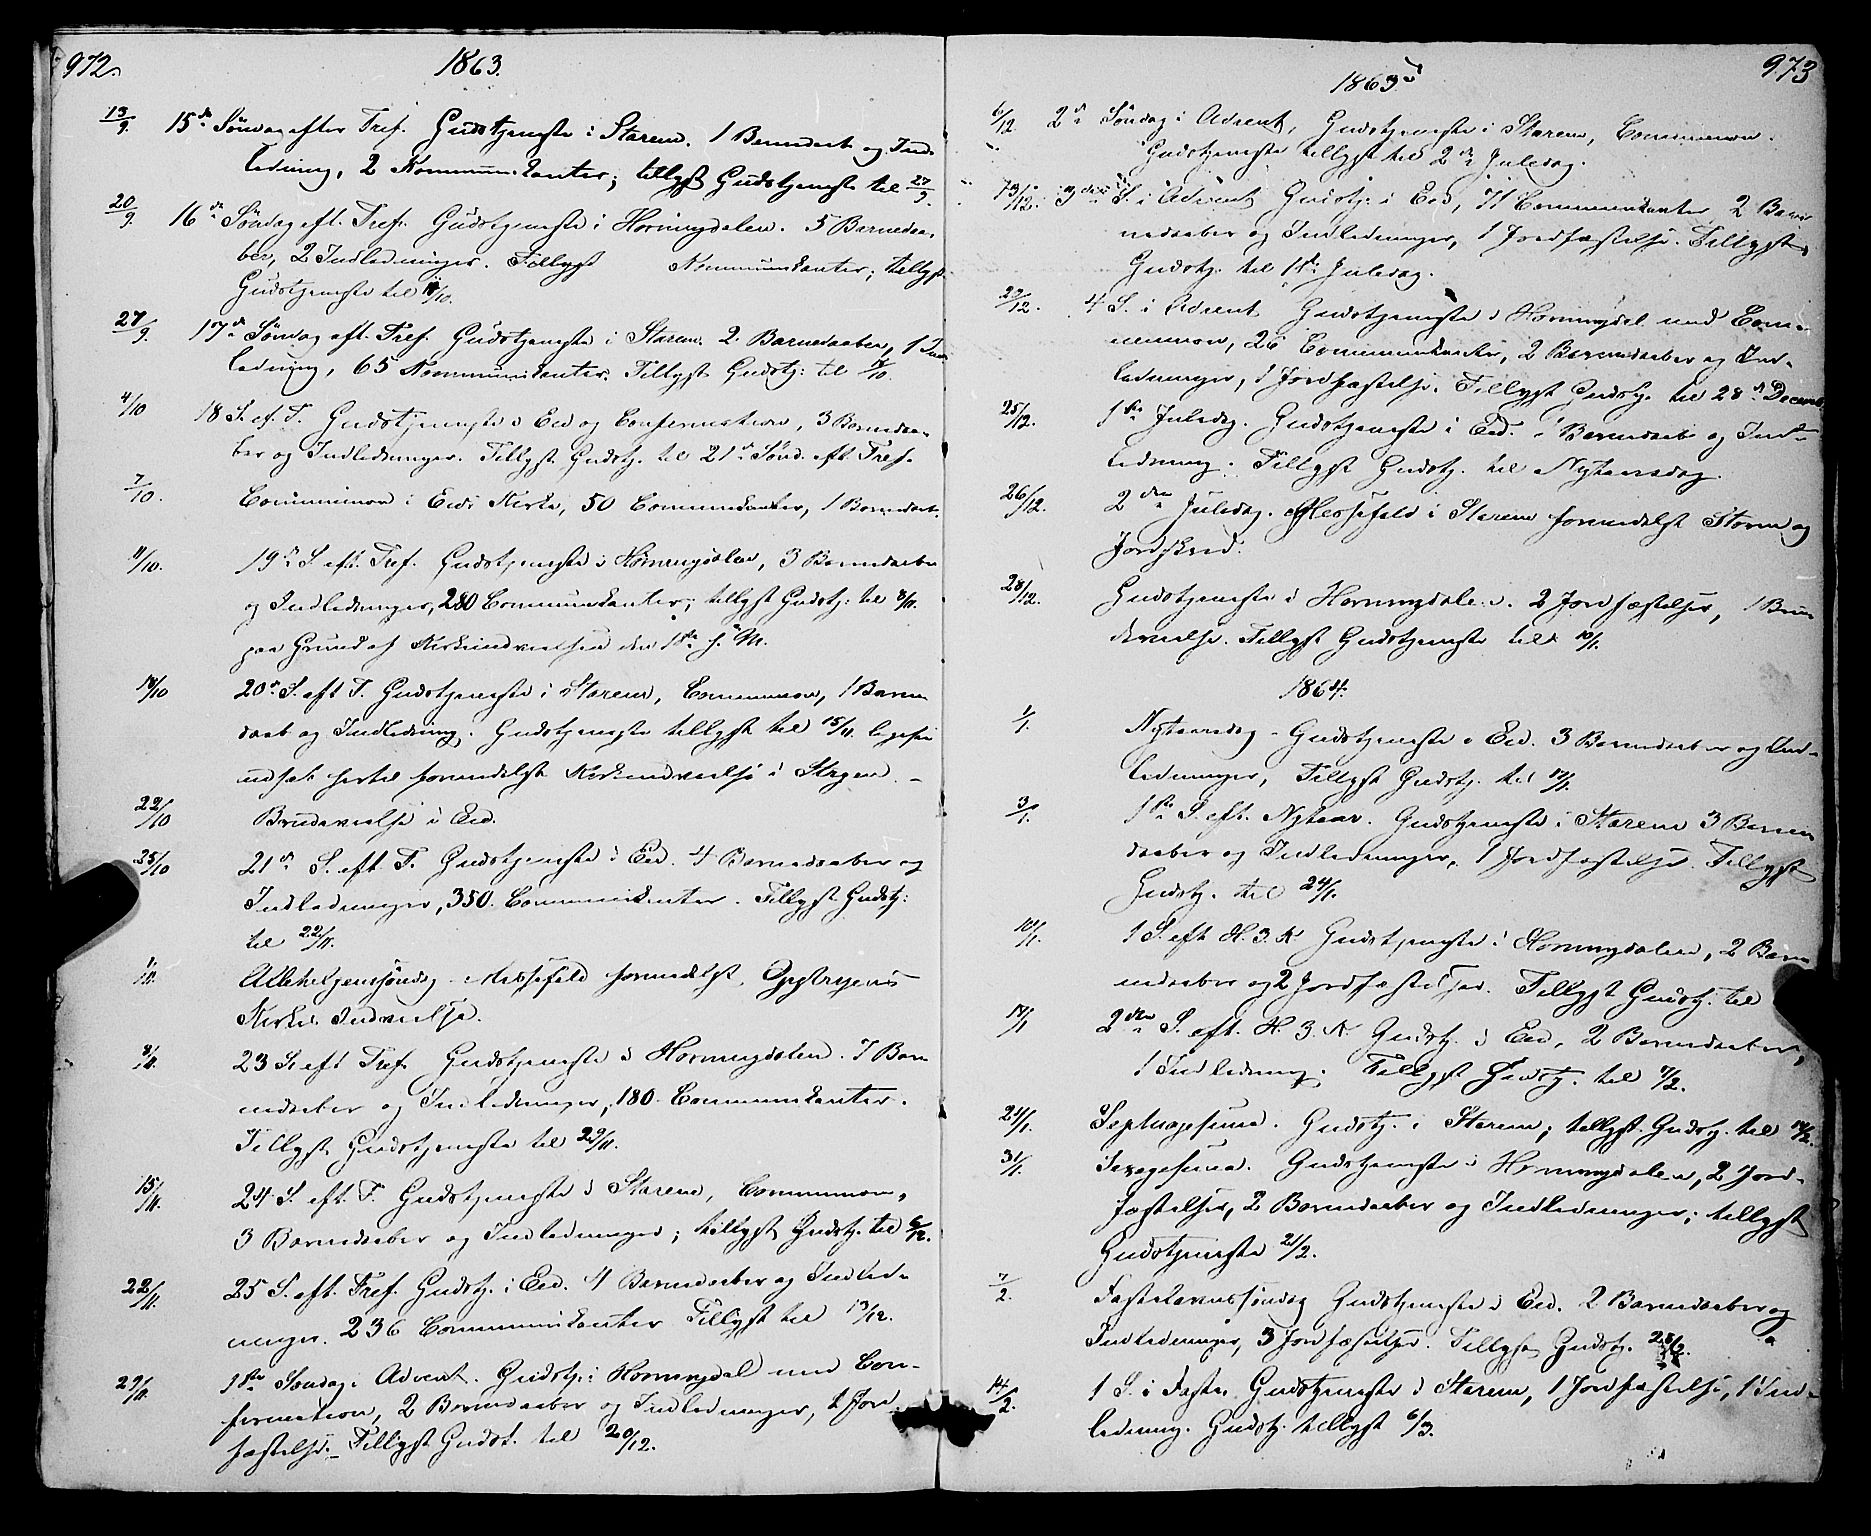 972.
1863.
13/9. 15de Søndag efter Tref. Gudstjeneste i Starem. 1 Barnedaab og Ind-
ledning, 2 Kommunikanter; tillyst Gudstjeneste til 27/9.
20/9. 16de Søndag eft. Tref. Gudstjeneste i Horningdalen. 5 Barnedaa-
ber, 2 Indledninger. Tillyst Kommunikanter; tillyst
Gudstjeneste til 11/10.
27/9. 17de Søndag eft. Tref. Gudstjeneste i Starem 2 Barnedaaber, 1 Ind
ledning, 65 Kommunikanter. Tillyst Gudstj: til 18/10.
4/10 18 S. ef. T. Gudstjeneste i Eid og Confirmation, 3 Barnedaa-
ber og Indledninger. Tillyst Gudstj. til 21de Sønd. eft Tref.
7/10. Communion i Eids Kirke, 50 Communikanter, 1 Barnedaab.
11/10. 19de S. eft. Tref. Gudstjeneste i Horningdalen, 3 Barnedaaber
og Indledninger, 280 Communikanter; tillyst Gudstj: til 8/11.
paa Grund af Kirkeindvielsen den 1ste f. M.
18/10 20de S. eft T. Gudstjeneste i Starem, Communion, 1 Barne
daab og Indledning. Gudstjeneste tillyst til 15/11.
udsat hertil formedelst Kirkeindvielse i Stryn. -
22/10 Brudevielse i Eid.
25/10 21de S. eft T. Gudstjeneste i Eid. 4 Barnedaaber og
Indledninger, 350 Communikanter. Tillyst Gudstj:
til 22/11.
1/11. Allehelgenssøndag. Messefald formedelst Opstryens
Kirkes Indvielse.
8/11. 23 S. eft Tref. Gudstjeneste i Horningdalen. 7 Bar
nedaaber og Indledninger, 180 Communikanter.
Tillyst Gudstjeneste til 29/11.
15/11. 24 S. eft. T. Gudstjeneste i Starem, Communion,
3 Barnedaaber og Indledninger; tillyst Gudstj. til 6/12.
22/11. 25 S. eft. Tref. Gudstj. i Eid. 4 Barnedaaber og Indled-
ninger. 236 Communikanter Tillyst til 13/12.
29/11. 1ste Søndag i Advent. Gudstj. i Horningdal med Con-
firmation, 2 Barnedaaber og Indledninger, 1 Jord
fæstelse. - Tillyst Gudst. til 20/12.
973
1863
6/12 2den Søndag i Advent, Gudstjeneste i Starem, Communion.
Gudstjeneste tillyst til 2den Juledag.
13/12. 3die S. i Advent Gudstj. i Eid, 71 Communikanter, 2 Bar
nedaaber og Indledninger, 1 Jordfæstelse. Tillyst
Gudstj. til 1ste Juledag.
4 S. i Advent Gudstjeneste i Horningdal med Com-
munion, 26 Communikanter, 2 Barnedaaber og Ind-
ledninger, 1 Jordfæstelse. Tillyst Gudstj. til 28de Decemb
25/12. 1ste Juledag. Gudstjeneste i Eid. 1 Barnedaab og Ind-
ledning. Tillyst Gudstj. til Nytaarsdag.
26/12. 2den Juledag. Messefald i Starem formedelst Storm og
Jordskred.
28/12. Gudstjeneste i Horningdalen. 2 Jordfæstelser, 1 Bru
devielse. Tillyst Gudstjeneste til 10/1.
1864.
1/1. Nytaarsdag - Gudstjeneste i Eid. 3 Barnedaaber og Ind-
ledninger, Tillyst Gudstj. til 17/1.
3/1. 1ste S. eft. Nytaar. Gudstjeneste i Starem 3 Barne
daaber og Indledninger, 1 Jordfæstelse. Tillyst
Gudstj. til 24/1.
10/1. 1 S. eft H. 3. K Gudstjeneste i Horningdalen, 2 Bar
nedaaber og 2 Jordfæstelser. Tillyst Gudstj. til
17/1 2den S. eft. H. 3. K. Gudstj. i Eid, 2 Barnedaaber,
1 Indledning. Tillyst Gudstj. til 7/2.
24/1. Septuagesima. Gudstj. i Starem; tillyst Gudstj. til 14/2.
31/1. Sexagesima. Gudstjeneste i Horningdalen, 2 Jord-
fæstelser, 2 Barnedaaber og Indledninger; tillyst
Gudstjeneste 21/2.
7/2. Fastelavnssøndag Gudstjeneste i Eid. 2 Barnedaaber og
Indledninger, 3 Jordfæstelser. Tillyst Gudstj. 28/2.
14/2. 1 S. i Faste, Gudstjeneste i Starem, 1 Jordfæstelse, 1 Ind-
ledning. Gudstj. tillyst 6/3.